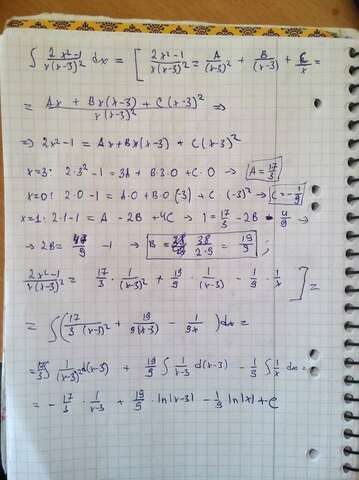 ∫ (2x²-1)/(x(x-3)²) dx = [ (2x²-1)/(x(x-3)²) = A/(x-3)² + B/(x-3) + C/x =
= (Ax + Bx(x-3) + C(x-3)²)/(x(x-3)²) ⇒
⇒ 2x²-1 = Ax+Bx(x-3) + C(x-3)²
x=3: 2·3²-1 = 3A + B·3·0 + C·0 → A = 17/3
x=0: 2·0-1 = A·0 + B·0·(-3) + C·(-3)² → C = -1/9
x=1: 2·1-1 = A - 2B + 4C → 1 = 17/3 - 2B - 4/9 →
→ 2B = 47/9 - 1 → B = 38/(2·9) = 19/9 ;
(2x²-1)/(x(x-3)²) = 17/3 · 1/(x-3)² + 19/9 · 1/(x-3) - 1/9 · 1/x ] =
= ∫ (17/(3(x-3)²) + 19/(9(x-3)) - 1/(9x)) dx =
= 17/3 ∫ 1/(x-3)² d(x-3) + 19/9 ∫ 1/(x-3) d(x-3) - 1/9 ∫ 1/x dx =
= - 17/3 · 1/(x-3) + 19/9 · ln|x-3| - 1/9 ln|x| + C